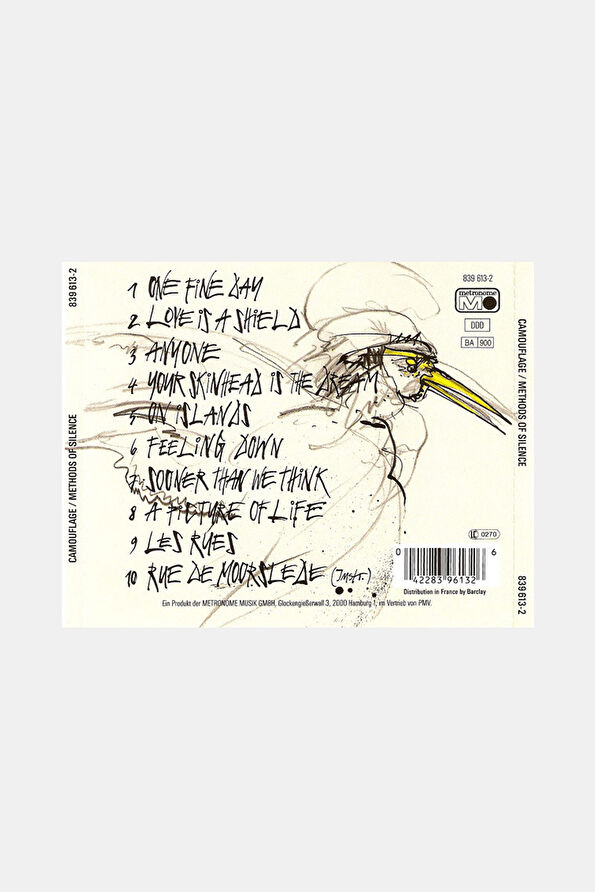 839 613-2
CAMOUFLAGE / METHODS OF SILENCE
1 ONE FINE DAY
2 LOVE IS A SHIELD
3 ANYONE
4 YOUR SKINHEAD IS THE DREAM
5 ON ISLANDS
6 FEELING DOWN
7 SOONER THAN WE THINK
8 A PICTURE OF LIFE
9 LES RUES
10 RUE DE MOORSLEDE (Instr.)
Ein Produkt der METRONOME MUSIK GMBH, Glockengießerwall 3, 2000 Hamburg 1, im Vertrieb von PMV.
839 613-2
metronome
M
DDD
BA 900
LC 0270
0 42283 96132 6
Distribution in France by Barclay
CAMOUFLAGE / METHODS OF SILENCE
839 613-2